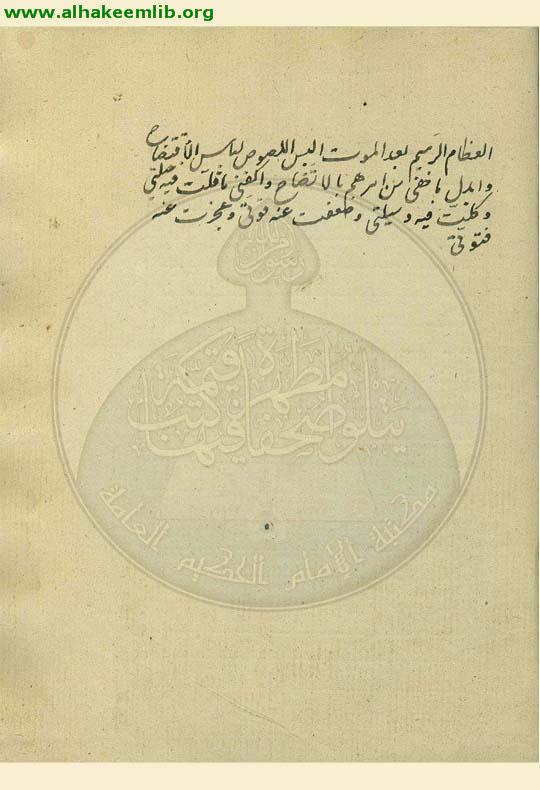 www.alhakeemlib.org
العظام الرميم بعد الموت البس اللصوص لباس
وابدل ما خفى من امرهم بالاتضاح واكفنى ما قلت فيه حيلتي
وكلت فيه وسيلتي وضعفت عنه قوتي وعجزت عنه
فتوتي
يتلو صحفا مطهرة فيها كتب قيمة
مكتبة الإمام الحكيم العامة